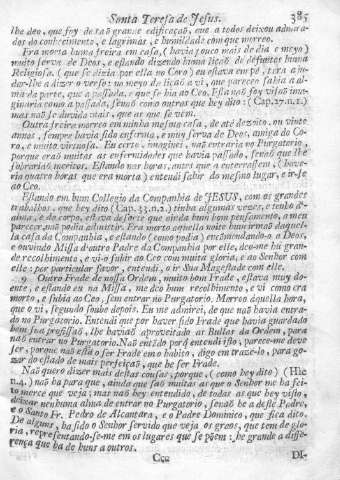 Santa Teresa de Jesus. 385
lhe deo, que foy de taõ grande edificaçaõ, que a todos deixou admira-
dos do conhecimento, e lagrimas, e humildade com que morreo.
Era morta huma freira em casa, (havia pouco mais de dia e meyo)
muito serva de Deos, e estando dizendo huma liçaõ de defuntos huma
Religiosa, (que se dizia por ella no Coro) eu estava em pé, para aju-
dar-lhe a dizer o verso: no meyo da liçaõ a vi, que pareceo sahia a al-
ma da parte, que a passada, e que se hia ao Ceo. Esta naõ foy visaõ ima-
ginaria como a passada, senaõ como outras que hey dito: (Cap.27.n.2.)
mas naõ se duvida mais, que as que se vem.
Outra freira morreo em minha mesma casa, de até dezoito, ou vinte
annos, sempre havia sido enferma, e muy serva de Deos, amiga do Co-
ro, e muito virtuosa. Eu certo, imaginei, naõ entraria no Purgatorio,
porque eraõ muitas as enfermidades que havia passado, senaõ que lhe
sobrariaõ meritos. Estando nas horas, antes que a enterrassem (have-
ria quatro horas que era morta) entendi sahir do mesmo lugar, e ir-se
ao Ceo.
Estando em hum Collegio da Companhia de JESUS, com os grandes
trabalhos, que hey dito (Cap.33.n.2.) tinha algumas vezes, e tenho de
alma, e de corpo, estava de sorte que ainda hum bom pensamento, a meu
parecer, naõ podia admittir. Era morto aquella noite hum irmaõ daquel-
la casa da Companhia, e estando (como podia) encomendando-o a Deos,
e ouvindo Missa doutro Padre da Companhia por elle, deo-me hū gran-
de recolhimento, e vi-o subir ao Ceo com muita gloria, e ao Senhor com
elle: por particular favor, entendi, o ir Sua Magestade com elle.
9. Outro Frade de nossa Ordem, muito bom Frade, estava muy do-
ente, e estando eu na Missa, me deo hum recolhimento, e vi como era
morto, e subia ao Ceo, sem entrar no Purgatorio. Morreo áquella hora,
que o vi, segundo soube depois. Eu me admirei, de que naõ havia entra-
do no Purgatorio. Entendi que por haver sido Frade que havia guardado
bem sua profissaõ, lhe haviaõ aproveitado as Bullas da Ordem, para
naõ entrar no Purgatorio. Naõ entēdo porq̃ entendi isto, parece-me deve
ser, porque naõ está o ser Frade em o habito, digo em traze-lo, para go-
zar do estado de mais perfeiçaõ, que he ser Frade.
Naõ quero dizer mais destas cousas, porque, (como hey dito) (Hic
n.4.) naõ ha para que, ainda que saõ muitas as que o Senhor me ha fei-
to merce que veja; mas naõ hey entendido, de todas as que hey visto,
deixar nenhuma alma de entrar no Purgatorio, senaõ he a deste Padre,
e o Santo Fr. Pedro de Alcantara, e o Padre Dominico, que fica dito.
De alguns, ha sido o Senhor servido que veja os graos, que tem de glo-
ria, representando-se-me em os lugares que se põem: he grande a diffe-
rença que ha de huns a outros.
Ccc DI-